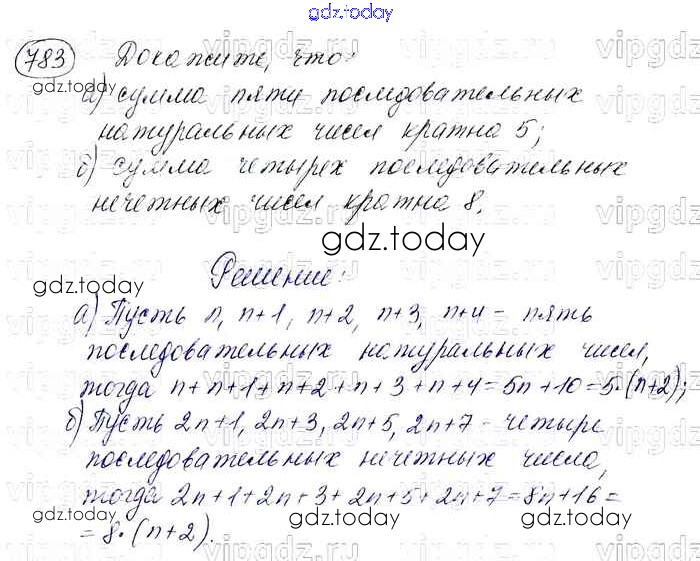 gdz.today
783 Докажите, что:
а) сумма пяти последовательных
натуральных чисел кратна 5;
б) сумма четырех последовательных
нечетных чисел кратна 8.
Решение:
а) Пусть n, n+1, n+2, n+3, n+4 - пять
последовательных натуральных чисел,
тогда n+n+1+n+2+n+3+n+4=5n+10=5·(n+2);
б) Пусть 2n+1, 2n+3, 2n+5, 2n+7 - четыре
последовательных нечетных числа,
тогда 2n+1+2n+3+2n+5+2n+7=8n+16=
=8·(n+2).